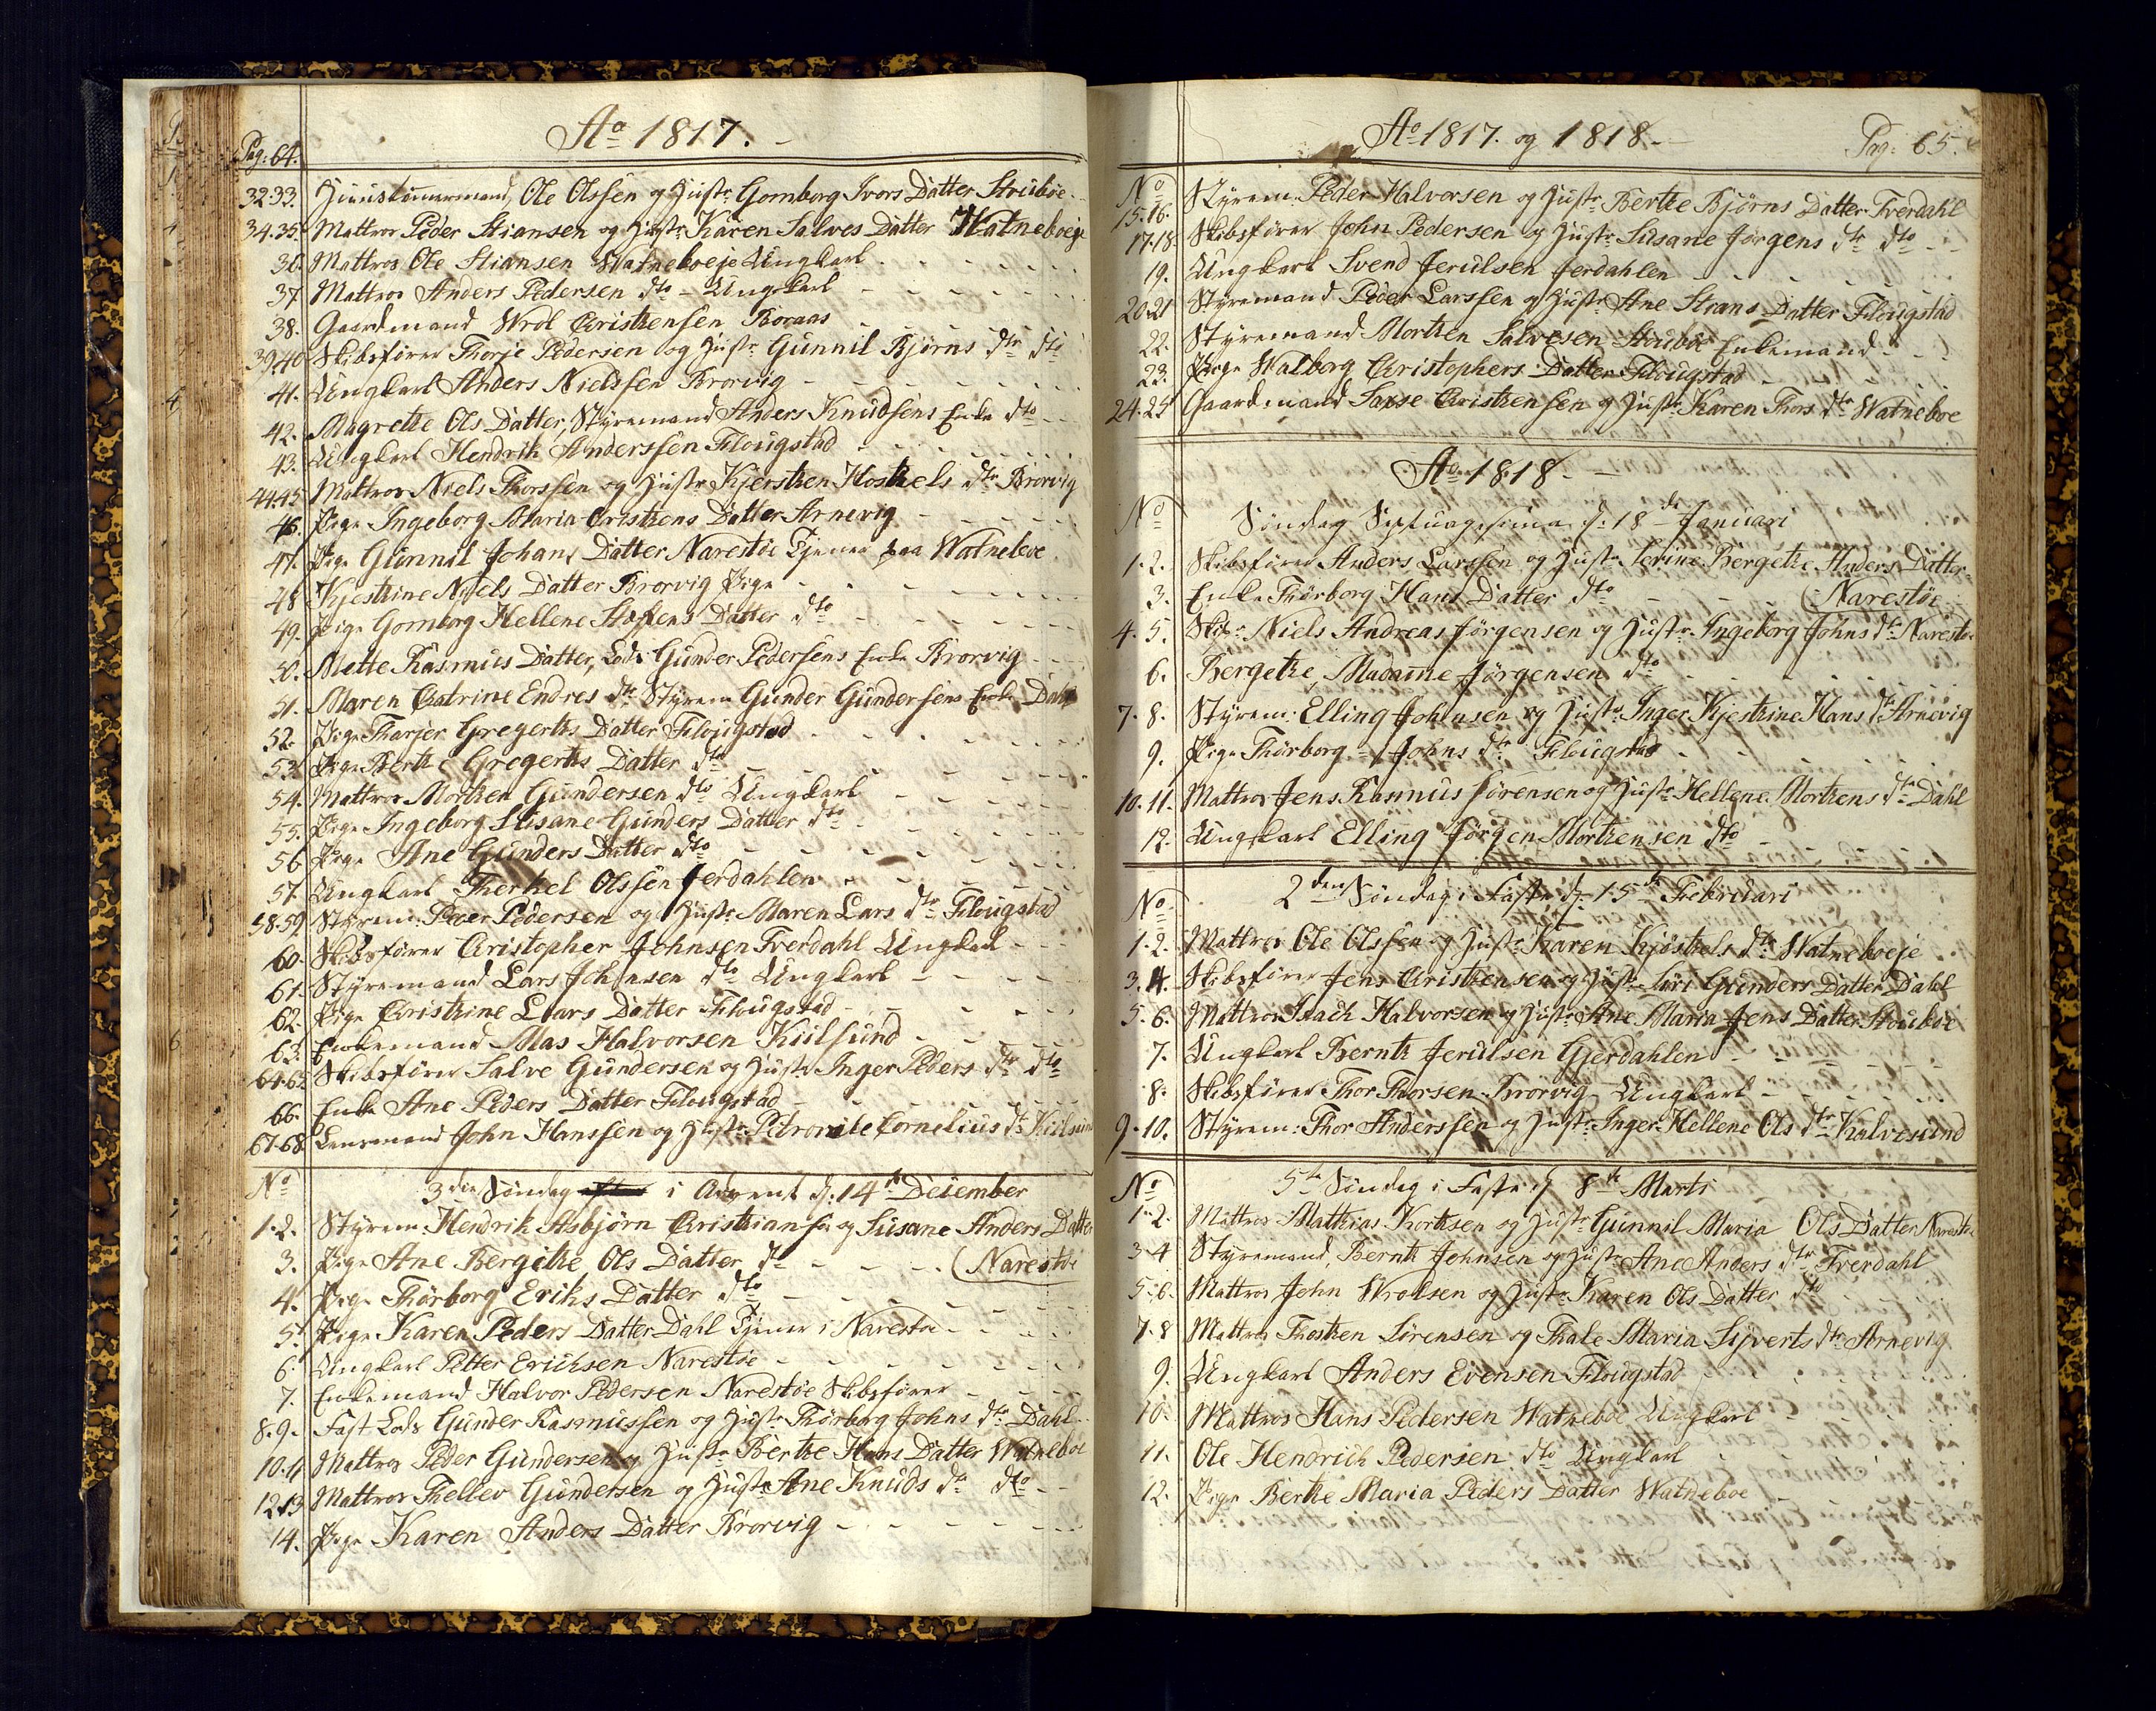 Pag: 64.
Ao 1817.
32.33. Huustømmermand, Ole Olssen og Hustr. Gomborg Ivers Datter Strubøe
34.35. Mattros Peder Stiansen og Hustr. Karen Salves Datter Watneboeje
36. Mattros Ole Stiansen Watneboeje Ungkarl
37 Mattros Anders Pedersen dto Ungkarl
38. Gaardmand Wrol Christensen Boraas
39.40 Skibsfører Thorje Pedersen og Hustr. Gunnil Bjørns dtr dto
41. Ungkarl Anders Nielssen Brorvig
42. Magrethe Ols Datter, Styremand Anders Knudsens Enke dto
43. Ungkarl Hendrik Anderssen Flougstad
44.45 Mattros Niels Thorssen og Hustr. Kjersten Kostkels dtr Brorvig
46. Pige Ingeborg Maria Cristens Datter Arnevig
47. Pige Gunnil Johans Datter Narestøe Tjener paa Watneboe
48 Kjestine Niels Datter Brorvig Pige
49. Pige Gomborg Hellene Staffens Datter dto
50. Mette Rasmus Datter, Lods Gunder Pedersens Enke Brorvig
51. Maren Catrine Endres dtr Styrem Gunder Gundersens Enke Dahl
52. Pige Tharjer Gregerts Datter Flougstad
53. Pige Berthe Gregerts Datter dto
54. Mattros Morten Gundersen dto Ungkarl
55. Pige Ingeborg Susane Gunders Datter dto
56 Pige Ane Gunders Datter dto
57. Ungkarl Therkel Olssen Jerdahlen
58.59 Styrem: Peder Pedersen og Hustr. Maren Lars dtr Flougstad
60. Skibsfører Christopher Johnsen Tverdahl Ungkarl
61. Styremand Lars Johnsen dto Ungkarl
62. Pige Christine Lars Datter Flougstad
63. Enkemand Mas Halvorsen Kiilsund
64.65 Skibsfører Salve Gundersen og Hustr. Inger Peders dtr dto
66. Enke Ane Peders Datter Flougstad
67.68. Lensmand John Hanssen og Hustr. Petronile Cornelius dtr Kiilsund
No 3die Søndag i Advent d: 14de December
1.2. Styrem: Hendrik Asbjørn Christiansen og Susane Anders Datter
3. Pige Ane Bergitte Ols Datter dto (Narestøe
4. Pige Thørborg Eriks Datter dto
5. Pige Karen Peders Datter Dahl Tjener i Narestøe
6. Ungkarl Petter Erichsen Narestøe
7. Enkemand Halvor Pedersen Narestøe Skibsfører
8.9. Fast Lods Gunder Rasmussen og Hustr. Thørborg Johns dtr Dahl
10.11 Mattros Peder Gundersen og Hustr. Berthe Hans Datter Watneboe
12.13 Mattros Thellev Gundersen og Hustr. Ane Knuds dtr dto
14. Pige Karen Anders Datter Brorvig
Ao 1817. og 1818
Pag: 65.
No
15.16. Styrem: Peder Halvorsen og Hustr. Berthe Bjørns Datter Tverdahl
17.18 Skibsfører John Pedersen og Hustr. Susane Jørgens dtr dto
19. Ungkarl Svend Jerulsen Jerdahlen
20.21 Styremand Peder Larssen og Hustr. Ane Strans Datter Flougstad
22. Styremand Morten Salvesen Strubøe Enkemand
23. Pige Walborg Christophers Datter Flougstad
24.25 Gaardmand Saxse Christensen og Hustr. Karen Thors dtr Watneboe
Ao 1818
No Søndag Septuagesima d: 18de Januari
1.2. Skibsfører Anders Larssen og Hustr. Serine Bergethe Anders Datter
3. Enke Thørborg Hans Datter dto (Narestøe
4.5. Skibr. Niels Andreas Jørgensen og Hustr. Ingeborg Johns dtr Narestøe
6. Bergethe, Madamme Jørgensen dto
7.8. Styrem: Elling Johnsen og Hustr. Inger Kjestine Hans dtr Arnevig
9. Pige Thørborg Johns dtr Flougstad
10.11. Mattros Jens Rasmus Sørensen og Hustr. Hellene Mortens dtr Dahl
12. Ungkarl Elling Jørgen Mortensen dto
No 2den Søndag i Faste d: 15de Februari
1.2. Mattros Ole Olssen og Hustr. Karen Kjøstels dtr Watneboeje
3.4. Skibsfører Jens Christensen og Hustr. Siri Gunders Datter Dahl
5.6. Mattros Isach Halvorsen og Hustr. Ane Maria Jens Datter Strubøe
7. Ungkarl Bernth Jerulsen Gjerdahlen
8. Skibsfører Thor Thorsen Brorvig Ungkarl
9.10. Styrem: Thor Anderssen og Hustr. Inger Hellene Ols dtr Kalvesund
No 5te Søndag i Faste d 8de Marti
1.2. Mattros Mathias Kortsen og Hustr. Gunnil Maria Ols Datter Narestøe
3.4 Styremand, Bernth Johnsen og Hustr. Ane Anders dtr Tverdahl
5.6. Mattros John Wrolsen og Hustr. Karen Ols Datter dto
7.8 Mattros Thosten Sørensen og Thale Maria Syverts dtr Arnevig
9. Ungkarl Anders Evensen Flougstad
10. Mattros Hans Pedersen Watneboe Ungkarl
11. Ole Hendrich Pedersen dto Ungkarl
12. Pige Berthe Maria Peders Datter Watneboe